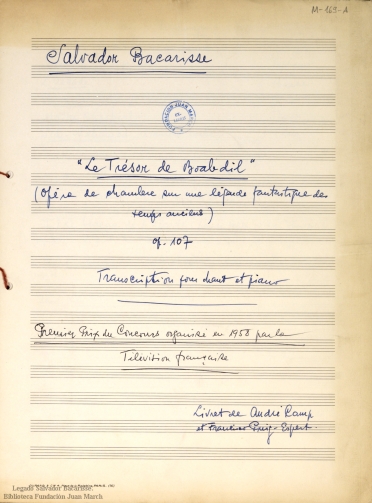 M-169-A
Salvador Bacarisse
FUNDACIÓN JUAN MARCH
"Le Trésor de Boabdil"
(Opéra de chambre sur une légende fantastique des
temps anciens)
op. 107
Transcription pour chant et piano
Premier Prix du Concours organisé en 1958 par la
Télévision française
Livret de André Camp
et Francisco Puig-Espert.
Legado Salvador Bacarisse.
Biblioteca Fundación Juan March